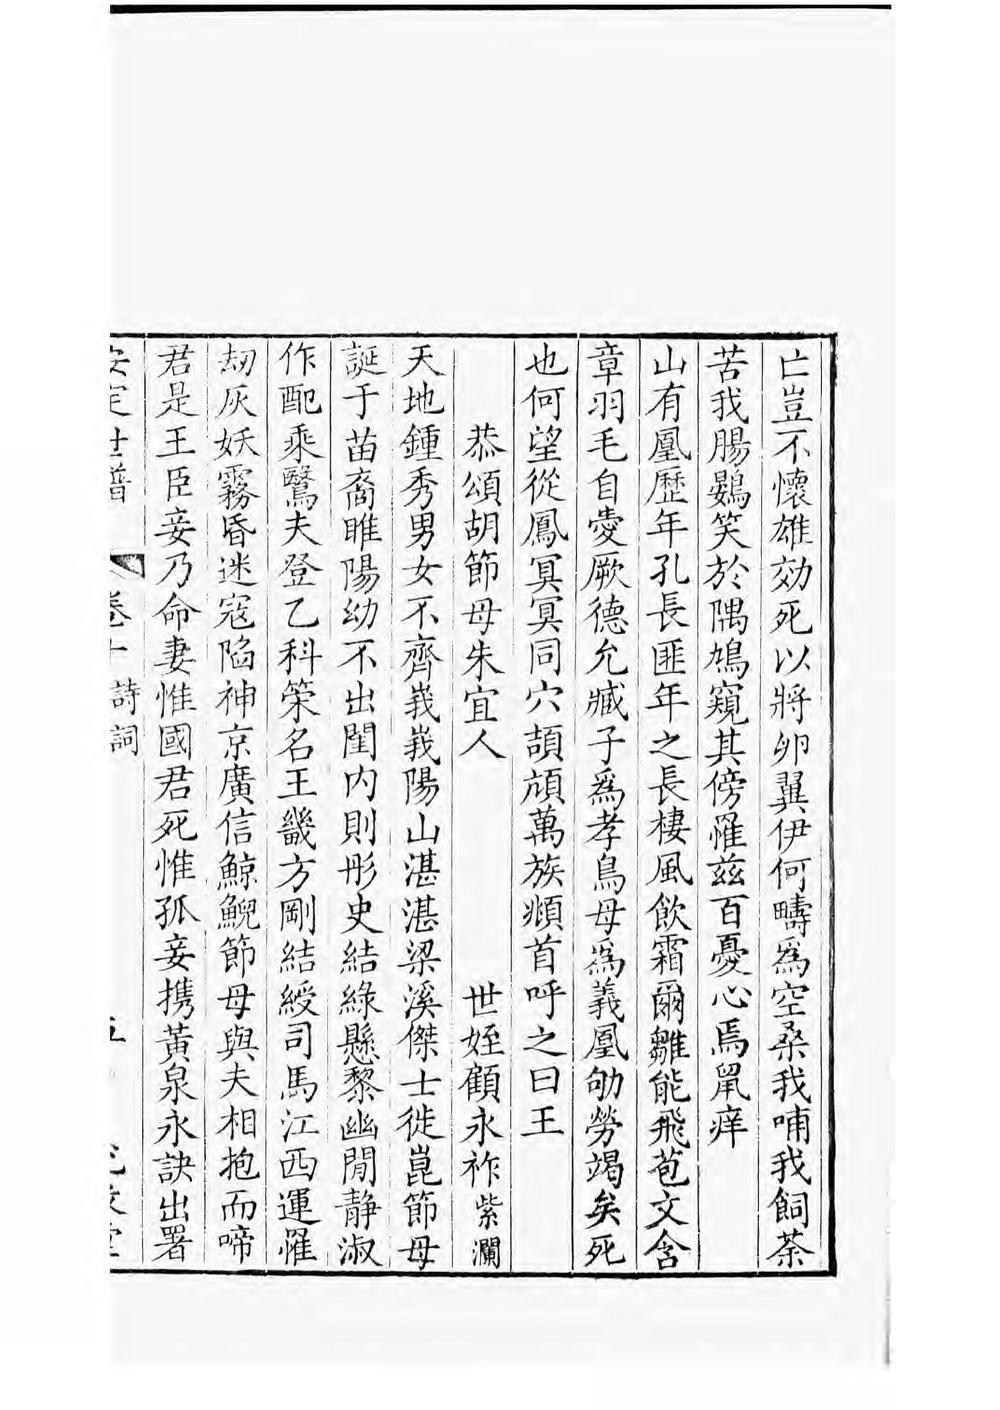 亡豈不懷雄効死以將卵翼伊何疇爲空桑我哺我飼荼
苦我腸鷃笑於隅鳩窺其傍罹兹百憂心焉鼠痒
山有凰歷年孔長匪年之長棲風飲霜爾雛能飛苞文含
章羽毛自愛厥德允臧子爲孝鳥母爲義凰劬勞竭矣死
也何望從鳳冥冥同穴頡頏萬族頫首呼之曰王
恭頌胡節母朱宜人
世姪顧永祚紫瀾
天地鍾秀男女不齊峩峩陽山湛湛梁溪傑士徙崑節母
誕于苗裔睢陽幼不出閨内則彤史結綠懸黎幽閒靜淑
作配乘鷖夫登乙科榮名王畿方剛結綬司馬江西運罹
刼灰妖霧昏迷寇陷神京廣信鯨鯢節母與夫相抱而啼
君是王臣妾乃命妻惟國君死惟孤妾携黃泉永訣出署
安定世譜
卷十
詩詞
五